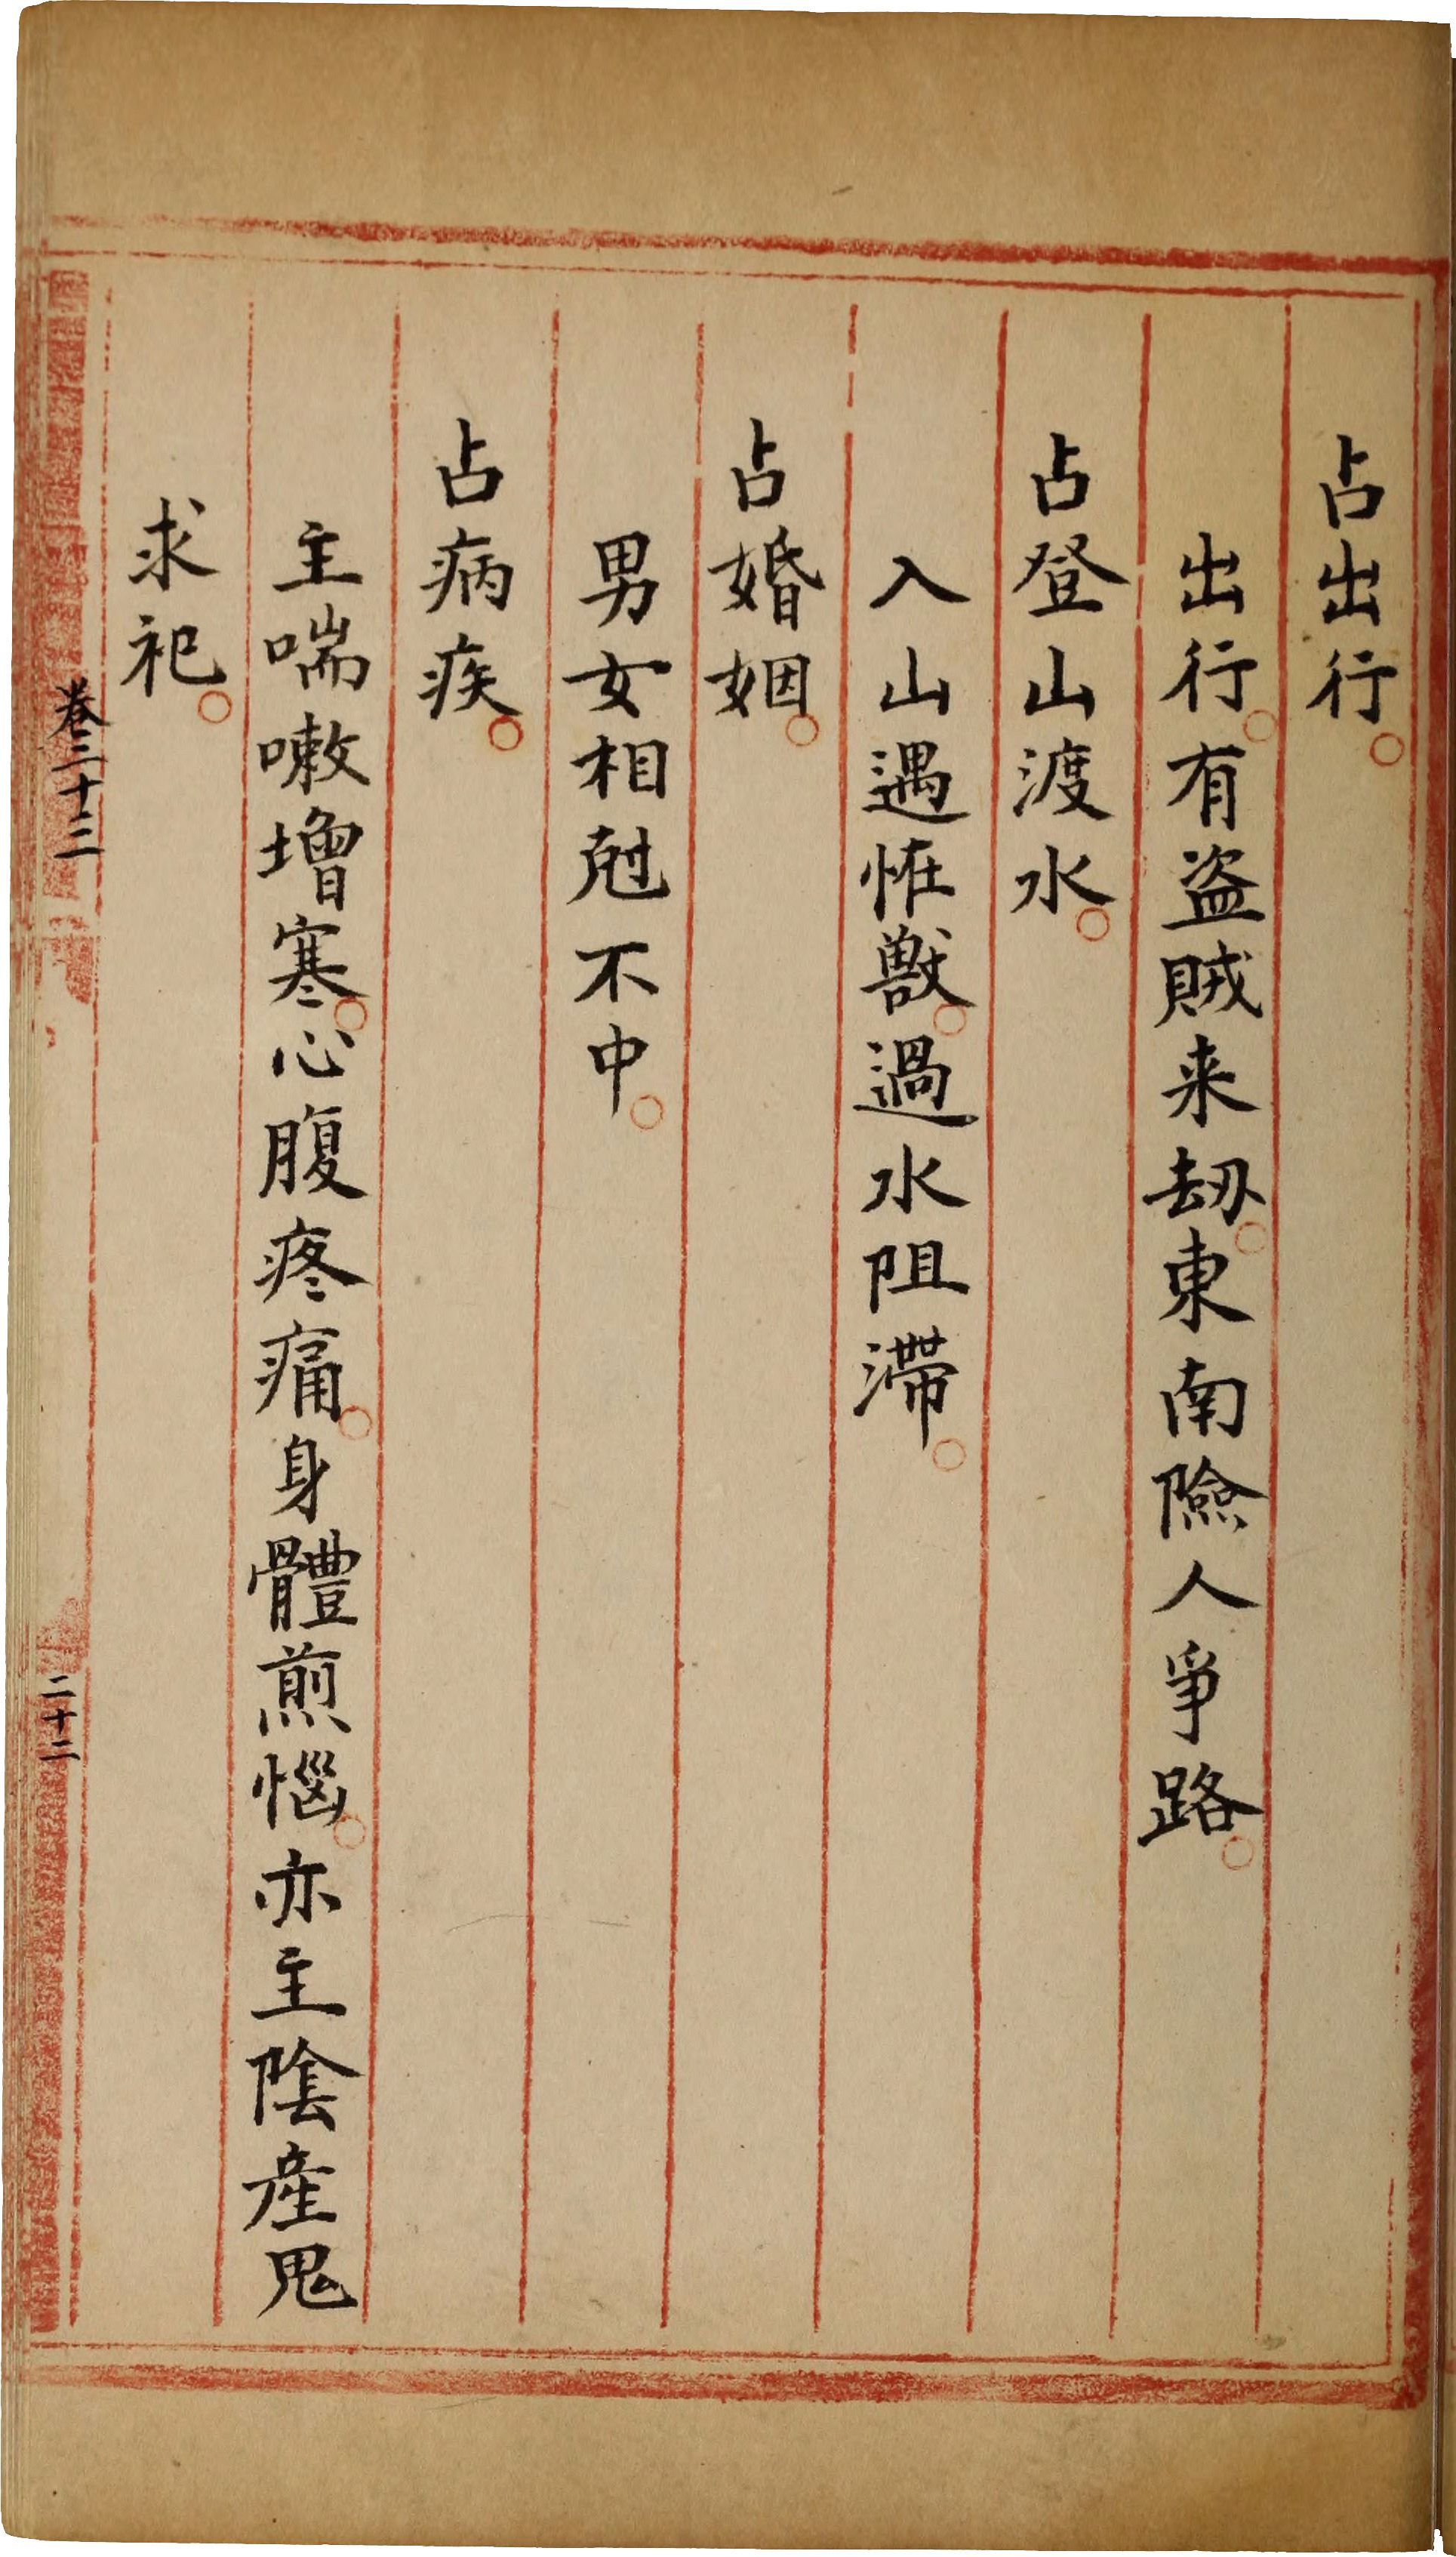 占出行。
出行。有盗賊来刼。東南險人爭路。
占登山渡水。
入山遇恠獸。過水阻滯。
占婚姻。
男女相尅不中。
占病疾。
主喘嗽增寒。心腹疼痛。身體煎惱。亦主陰產鬼
求祀。
卷三十三
二十二